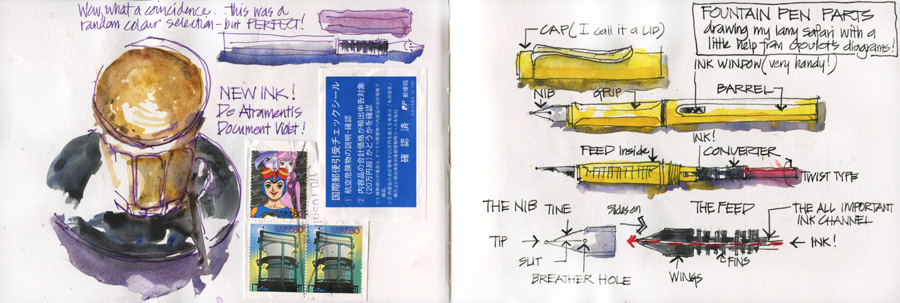 Wow, what a coincidence. this was a
random colour selection - but PERFECT!
NEW INK!
De Atramentis
Document Violet!
国際郵便引受チェックシール
① 航空危険物の説明・確認
② 内容品の合計価格が輸出申告対象
(20万円超)かどうかを確認
確認済
JP 郵便局
80
80
80
FOUNTAIN PEN PARTS
drawing my lamy safari with a
little help from Goulet's diagrams!
CAP (I call it a LID)
INK WINDOW (very handy!)
NIB
GRIP
BARREL
INK!
FEED inside
CONVERTER
TWIST TYPE
THE NIB
TINE
Slides on
THE FEED
THE ALL IMPORTANT
INK CHANNEL
TIP
INK!
SLIT
BREATHER HOLE
WINGS
FINS